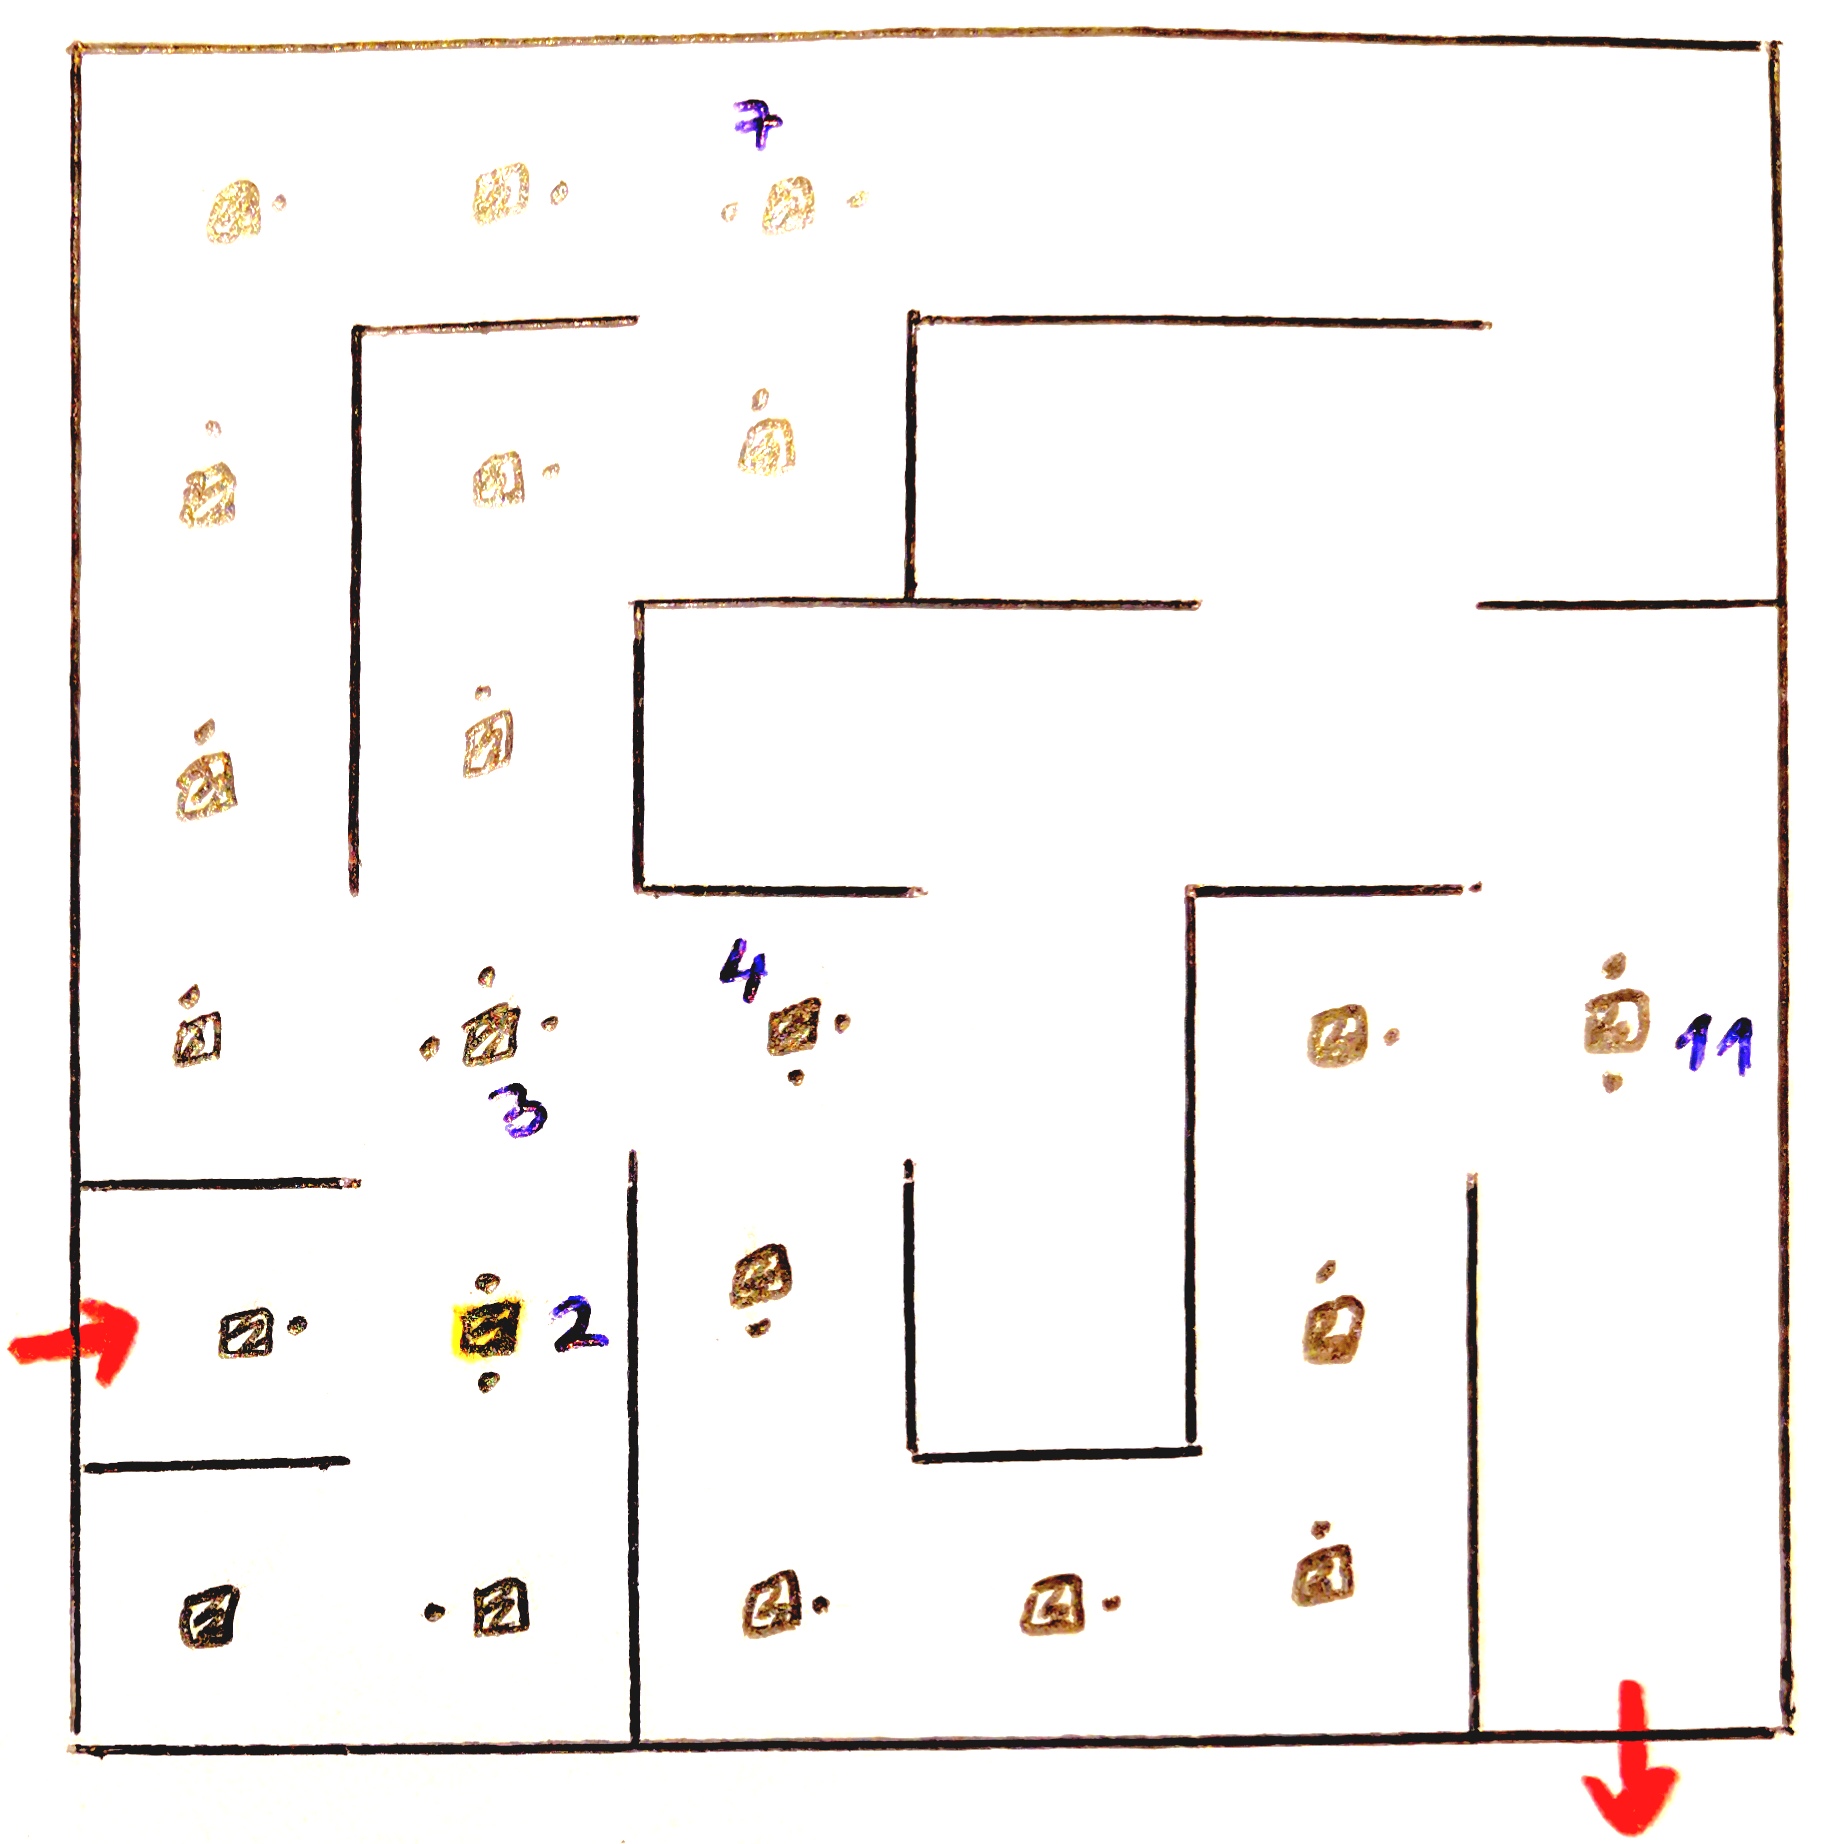 7
4
11
3
2